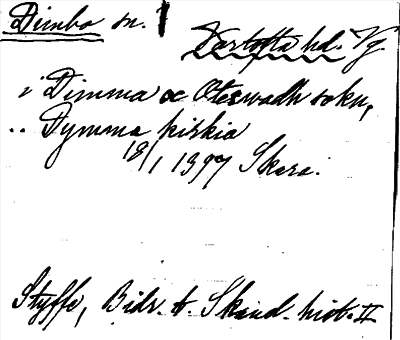 Dimbo sn. 1
Vartofta hd. Vg.
i Dimma oc Oteswadh soku,
.. Dymma kirkia
18/1 1397 Skara.
Styffe, Bidr. t. Skand. hist. II